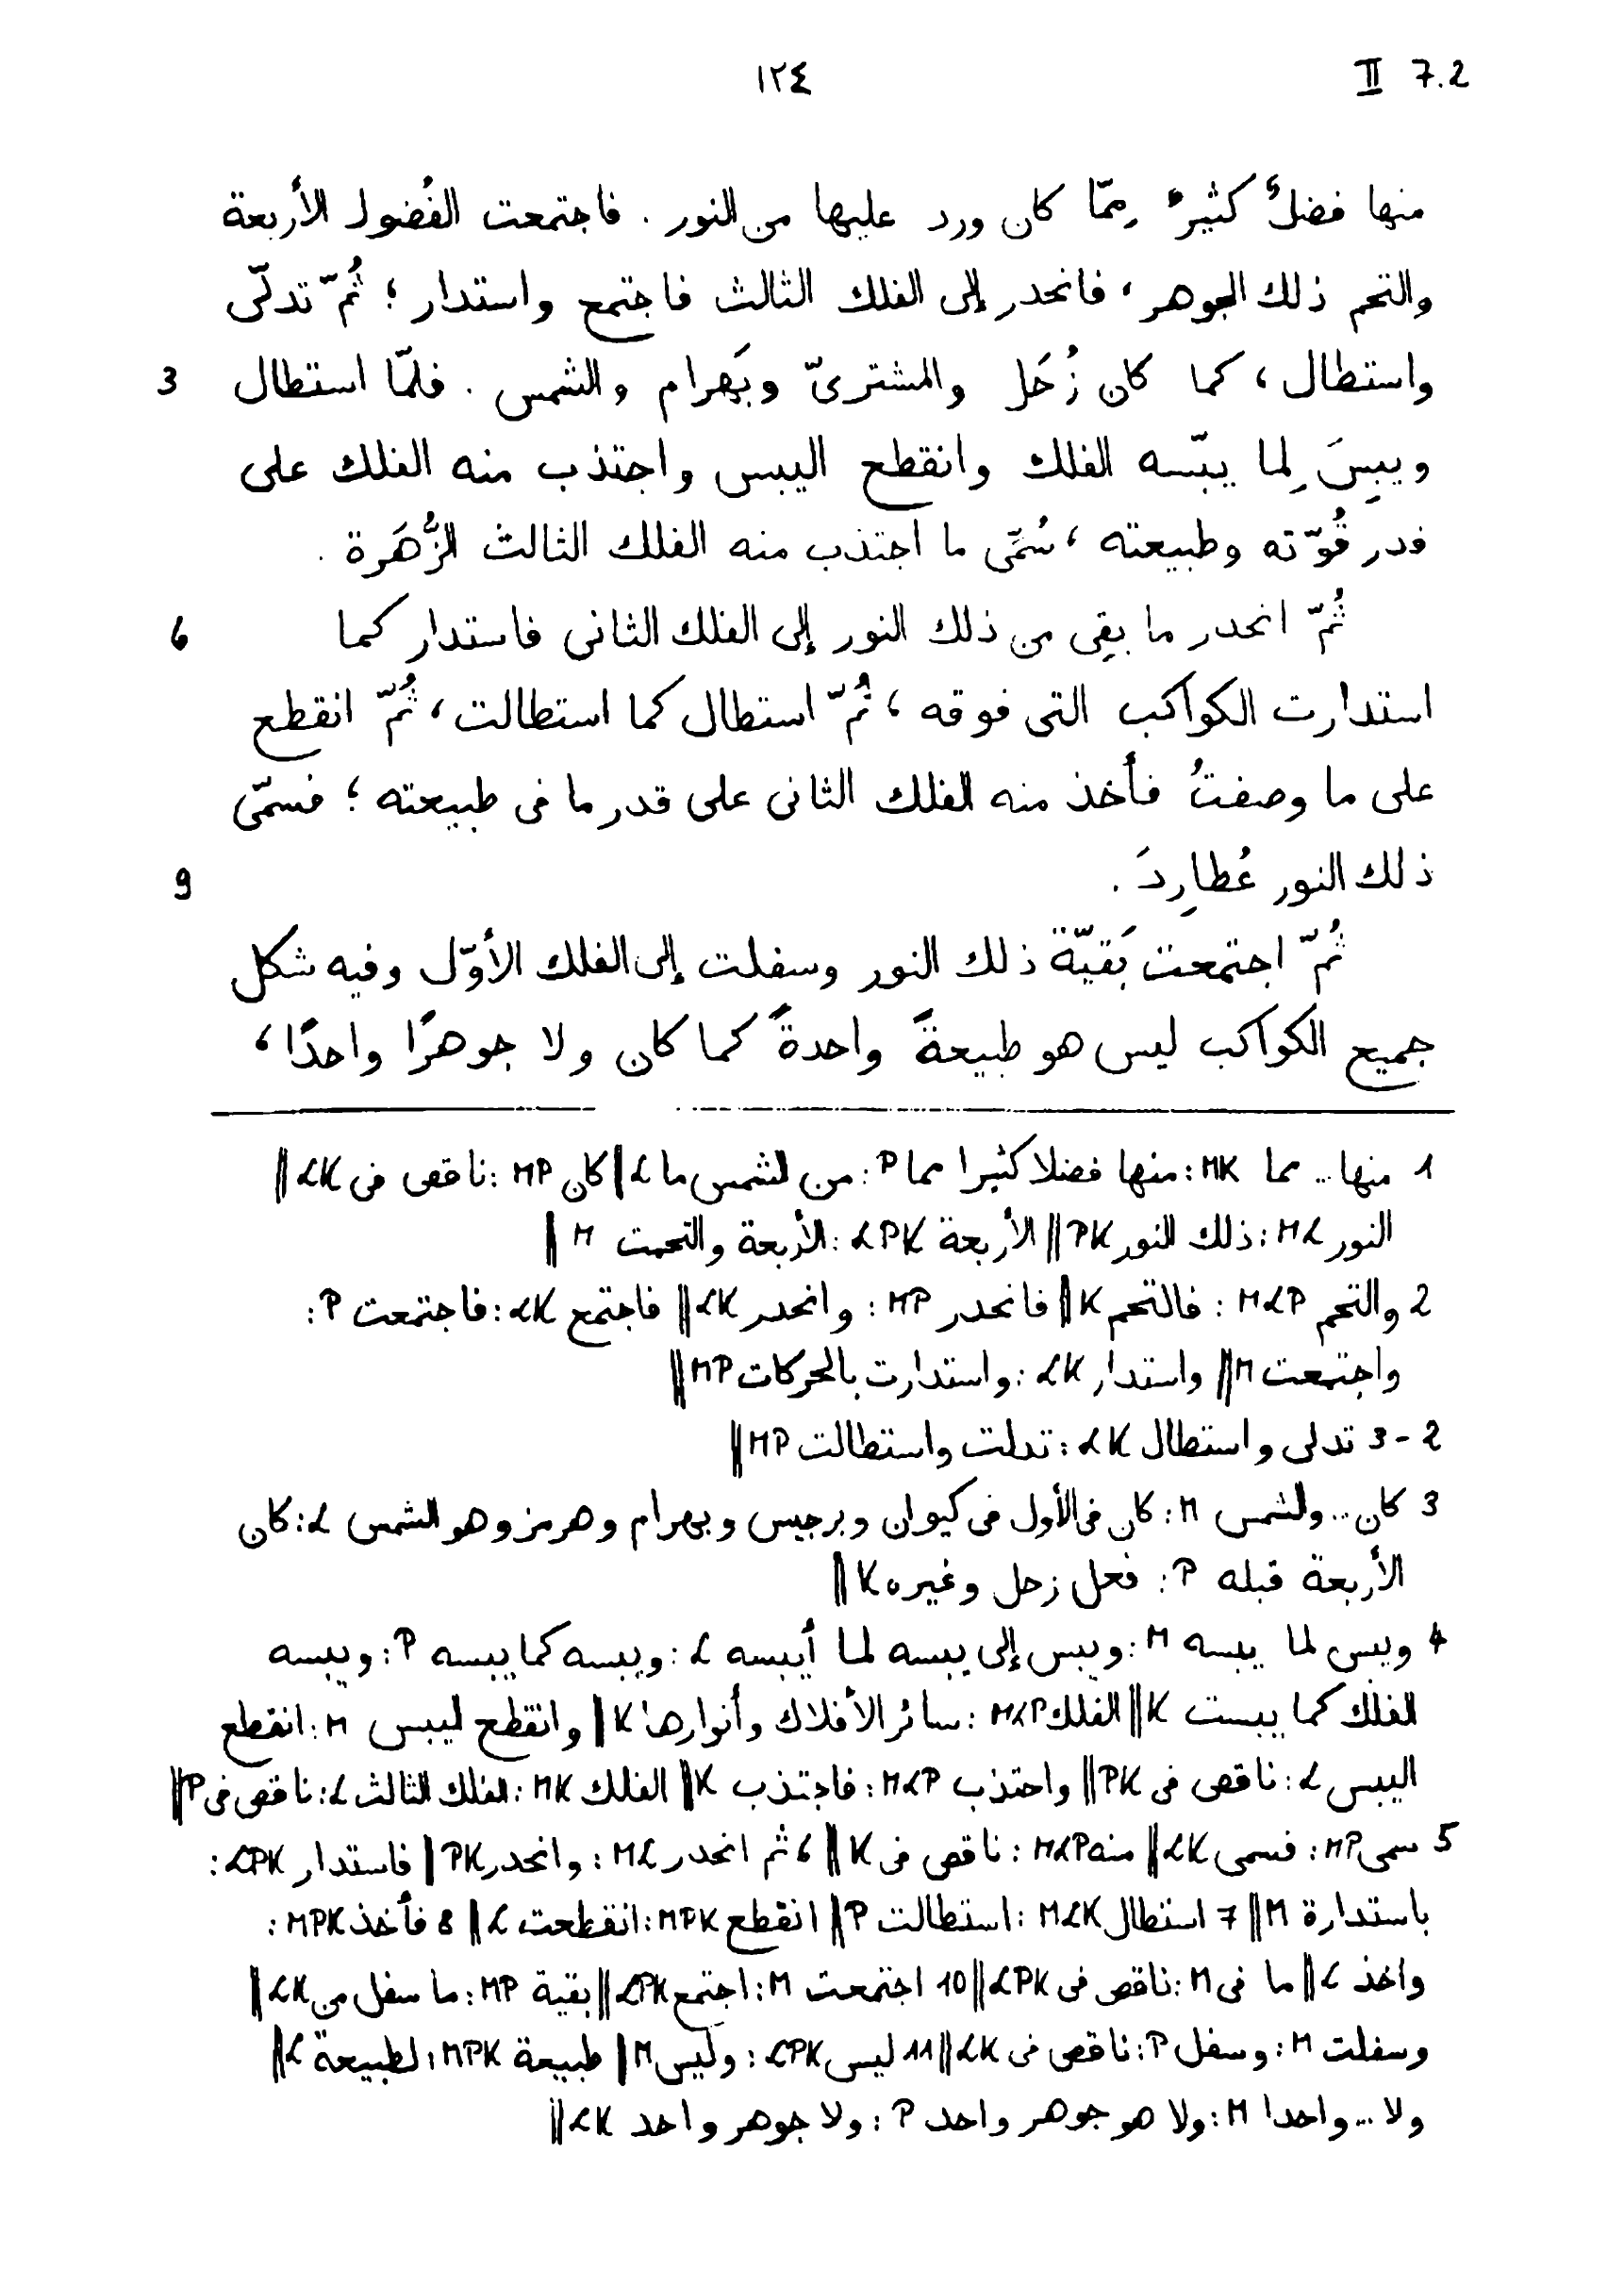 ١٢٤
II 7.2
منها فضلٌ كثيرٌ مِمّا كان ورد عليها من النور . فاجتمعت الفُضول الأربعة
والتحم ذلك الجوهر ، فانحدر إلى الفلك الثالث فاجتمع واستدار ؛ ثُمّ تدلّى
3 واستطال ، كما كان زُحَل والمشتريّ وبَهرام والشمس . فلمّا استطال
ويبِسَ لِما يبّسه الفلك وانقطع اليبس واجتذب منه الفلك على
قدر قُوّته وطبيعته ، سُمِّى ما اجتذب منه الفلك الثالث الزُّهَرة .
6 ثُمّ انحدر ما بقِى من ذلك النور إلى الفلك الثانى فاستدار كما
استدارت الكواكب التى فوقه ، ثُمّ استطال كما استطالت ، ثُمّ انقطع
على ما وصفتُ فأخذ منه الفلك الثانى على قدر ما فى طبيعته ؛ فسمّى
9 ذلك النور عُطارِدَ .
ثُمّ اجتمعت بَقِيّة ذلك النور وسفلت إلى الفلك الأوّل وفيه شكل
جميع الكواكب ليس هو طبيعةً واحدةً كما كان ولا جوهرًا واحدًا ،
1 منها .. مما MK : منها فضلا كثيرا مما P : من لشمس ما L || كان MP : ناقص فى LK ||
النور ML : ذلك النور PK || الأربعة LPK : الأربعة والتحمت M ||
2 والتحم MLP : فالتحم K || فانحدر MP : وانحدر LK || فاجتمع LK : فاجتمعت P :
واجتمعت M || واستدار LK : واستدارت بالحركات MP ||
2 - 3 تدلى واستطال LK : تدلت واستطالت MP ||
3 كان .. ولشمس M : كان فى الأول فى كيوان وبرجيس وبهرام وهرمز وهو الشمس L : كان
الأربعة قبله P : فعل زحل وغيره K ||
4 ويبس لما يبسه M : ويبس إلى يبسه لما أيبسه L : ويبسه كما يبسه P : ويبسه
الفلك كما يبست K || الفلك MLP : سائر الأفلاك وأنوارها K || وانقطع ليبس M : انقطع
اليبس L : ناقص فى PK || واحتذب MLP : فاجتذب K || الفلك MK : الفلك الثالث L : ناقص فى P ||
5 سمى MP : فسمى LK || منه MLP : ناقص فى K || 6 ثم انحدر ML : وانحدر PK || فاستدار LPK :
باستدارة M || 7 استطال MLK : استطالت P || انقطع MPK : انقطعت L || 8 فأخذ MPK :
واخذ L || ما فى M : ناقص فى LPK || 10 اجتمعت M : اجتمع LPK || بقية MP : ما سفل من LK ||
وسفلت M : وسفل P : ناقص فى LK || 11 ليس LPK : وليس M || طبيعة MPK : لطبيعة L ||
ولا ... واحدا M : ولا هو جوهر واحد P : ولا جوهر واحد LK ||